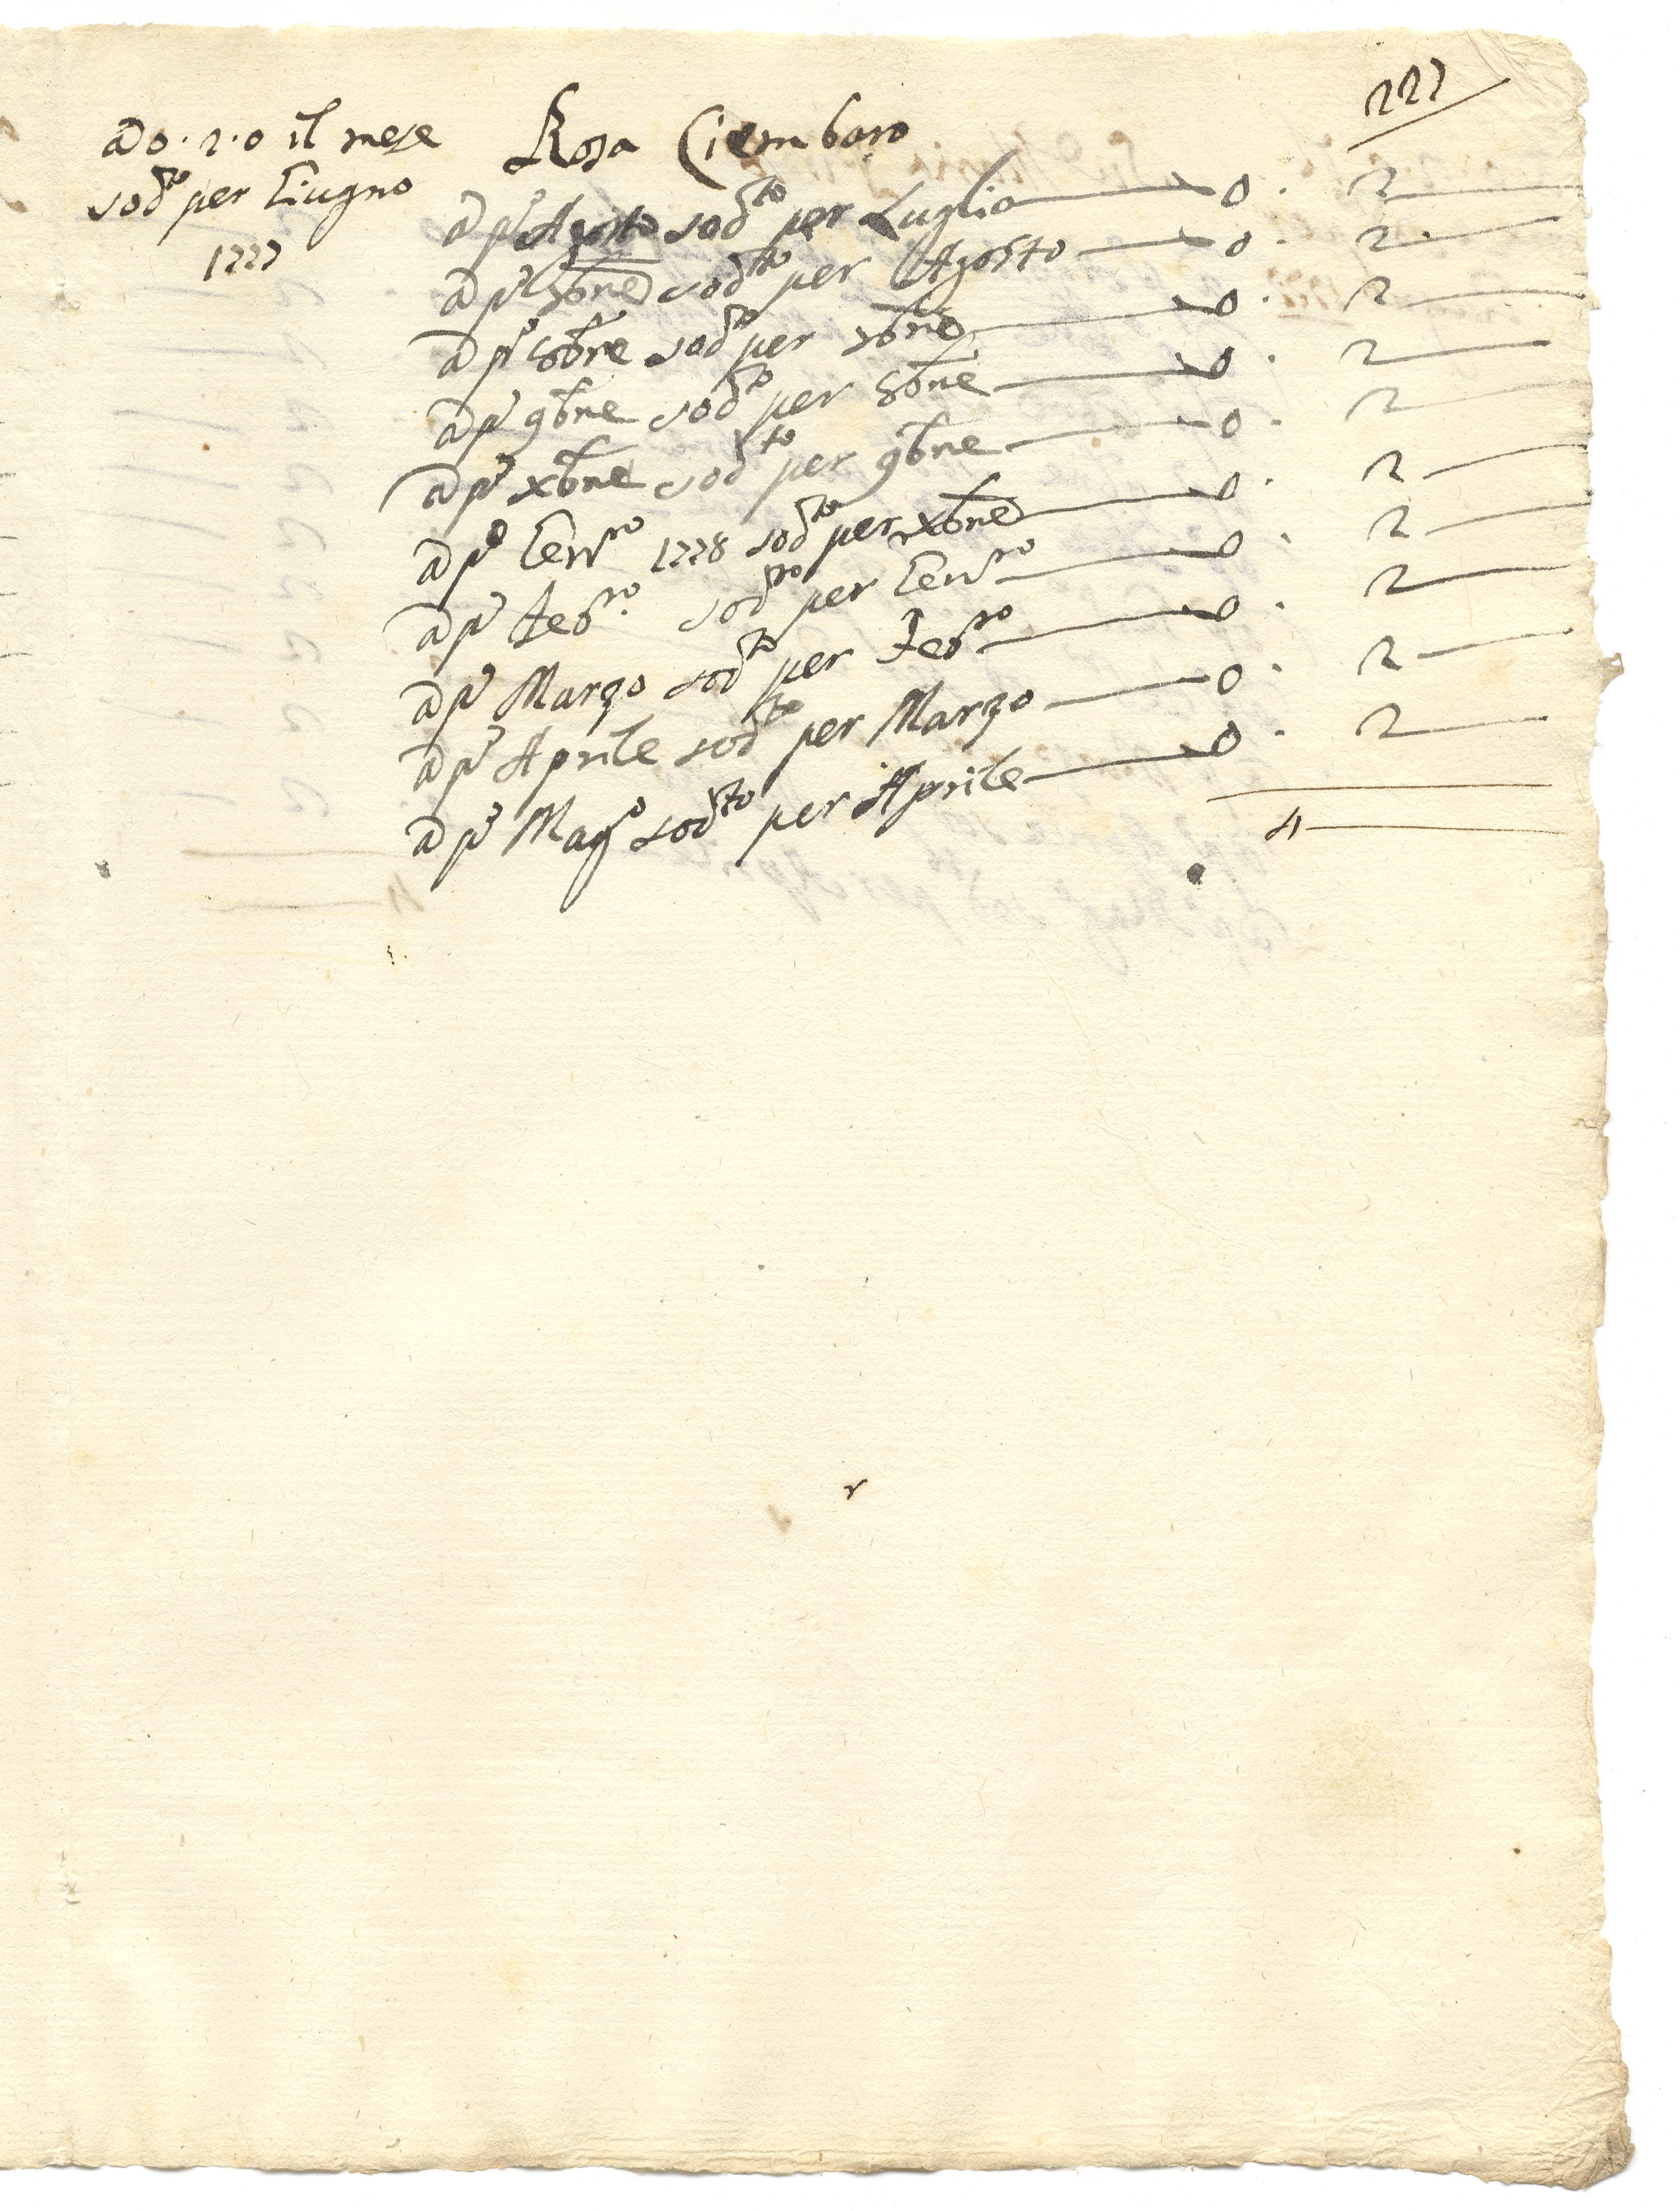 a 0 · 2 · 0 il mese
sodto per Giugno
1777
Rosa Ciembaro
227
a po Agosto sodto per Luglio — 0 · 2 —
a po 7bre sodto per Agosto — 0 · 2 —
a po 8bre sodto per 7bre — 0 · 2 —
a po 9bre sodto per 8bre — 0 · 2 —
a po xbre sodto per 9bre — 0 · 2 —
a po Genro 1778 sodto per xbre — 0 · 2 —
a po Febro sodto per Genro — 0 · 2 —
a po Marzo sodto per Febro — 0 · 2 —
a po Aprile sodto per Marzo — 0 · 2 —
a po Mago sodto per Aprile — 0 · 2 —
4 —